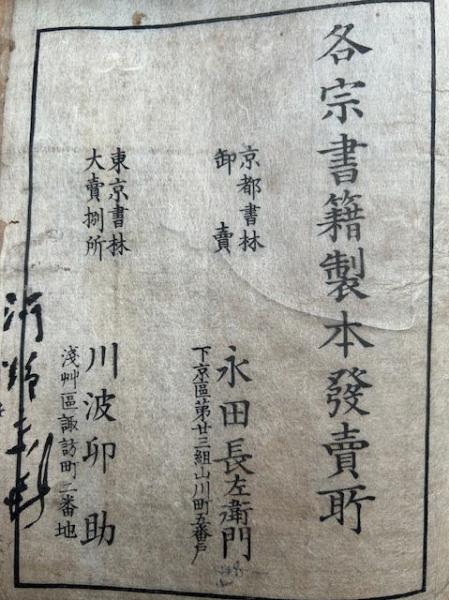 各宗書籍製本發賣所
京都書林
卸賣
下京區第廿三組山川町五番戸
永田長左衛門
東京書林
大賣捌所
淺艸區諏訪町二番地
川波卯助